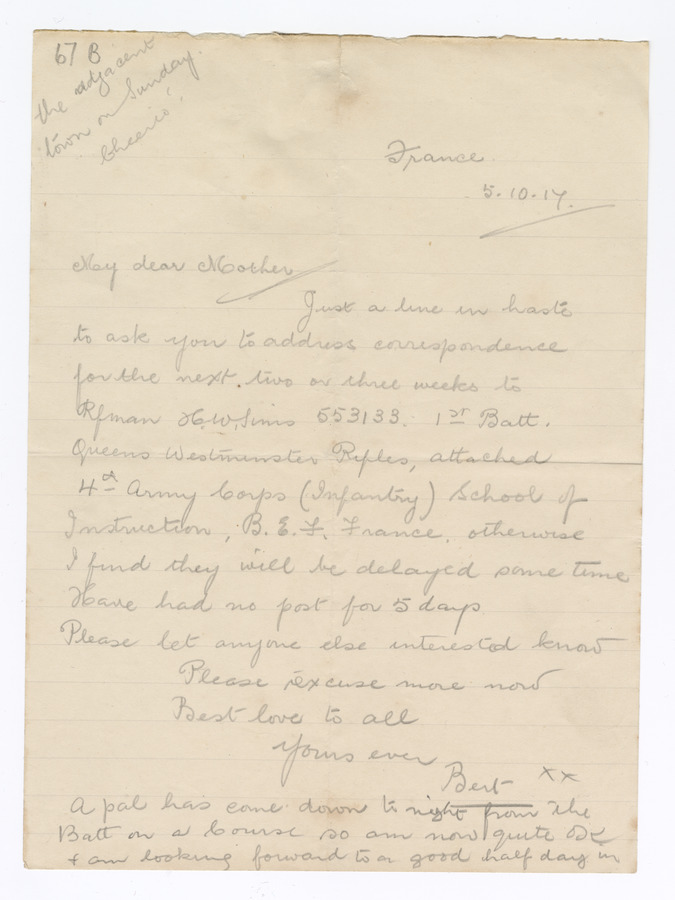 67 B
France.
5.10.17.
My dear Mother
Just a line in haste
to ask you to address correspondence
for the next two or three weeks to
Rfman H.W. Sims 553133. 1st Batt.
Queens Westminster Rifles, attached
4th Army Corps (Infantry) School of
Instruction, B.E.F. France, otherwise
I find they will be delayed some time
Have had no post for 5 days
Please let anyone else interested know
Please excuse more now
Best love to all
Yours ever
Bert xx
A pal has come down to night from the
Batt on a Course so am now quite OK
+ am looking forward to a good half day in
the adjacent
town on Sunday.
Cheerio!